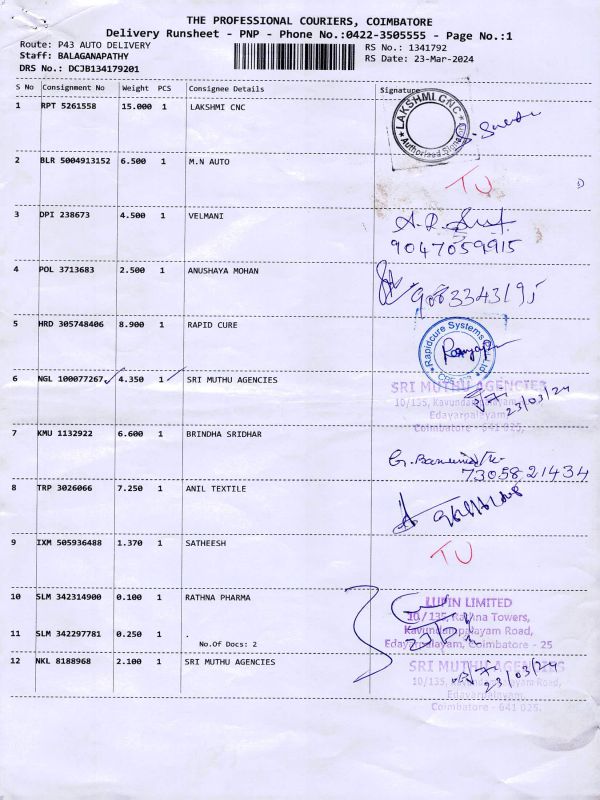 THE PROFESSIONAL COURIERS, COIMBATORE
Delivery Runsheet - PNP - Phone No.:0422-3505555 - Page No.:1
Route: P43 AUTO DELIVERY
RS No.: 1341792
Staff: BALAGANAPATHY
RS Date: 23-Mar-2024
DRS No.: DCJB134179201
S No Consignment No Weight PCS Consignee Details Signature
1 RPT 5261558 15.000 1 LAKSHMI CNC
LAKSHMI CNC
Authorised Signatory
2 BLR 5004913152 6.500 1 M.N AUTO
TU
3 DPI 238673 4.500 1 VELMANI
9047059915
4 POL 3713683 2.500 1 ANUSHAYA MOHAN
5 HRD 305748406 8.900 1 RAPID CURE
Rapidcure Systems
6 NGL 100077267 4.350 1 SRI MUTHU AGENCIES
SRI MUTHU AGENCIES
10/135, Kavundampalayam
Edayarpalayam
Coimbatore - 641 025.
23/03/24
7 KMU 1132922 6.600 1 BRINDHA SRIDHAR
7305821434
8 TRP 3026066 7.250 1 ANIL TEXTILE
9 IXM 505936488 1.370 1 SATHEESH
TU
10 SLM 342314900 0.100 1 RATHNA PHARMA
LUPIN LIMITED
10/135, Rathna Towers,
Kavundampalayam Road,
Edayarpalayam, Coimbatore - 25
11 SLM 342297781 0.250 1 .
No.Of Docs: 2
12 NKL 8188968 2.100 1 SRI MUTHU AGENCIES
SRI MUTHU AGENCIES
23/03/24
Edayarpalayam
Coimbatore - 641 025.